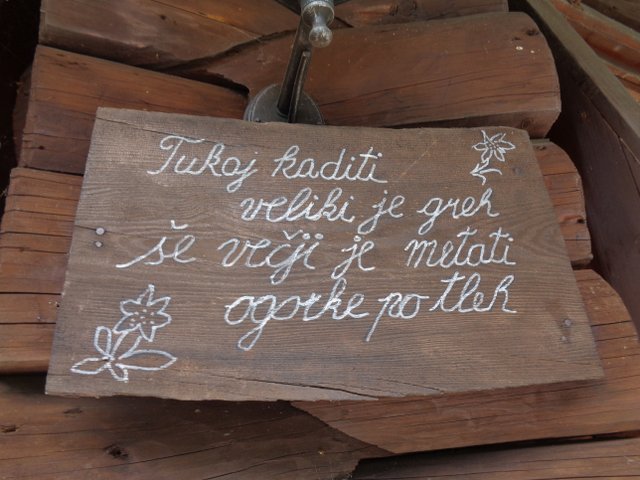 Tukaj kaditi
veliki je greh
še večji je metati
ogorke po tleh